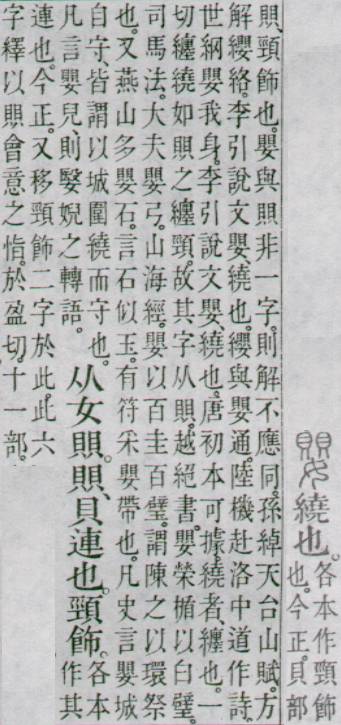 嬰繞也。各本作頸飾
也。今正。貝部
賏、頸飾也。嬰與賏非一字。則解不應同。孫綽天台山賦。方
解纓絡。李引說文嬰、繞也。纓與嬰通。陸機赴洛中道作詩。
世網嬰我身。李引說文嬰、繞也。唐初本可據。繞者、纏也。一
切纏繞如賏之纏頸。故其字从賏。越絕書。嬰榮楯以白璧。
司馬法。大夫嬰弓。山海經。嬰以百圭百璧。謂陳之以環祭
也。又燕山多嬰石。言石似玉。有符采嬰帶也。凡史言嬰城
自守、皆謂以城圍繞而守也。
凡言嬰兒、則嫛婗之轉語。
从女賏。賏、貝連也。頸飾。各本
作其
連也。今正。又移頸飾二字於此。此六
字釋以賏會意之恉。於盈切。十一部。